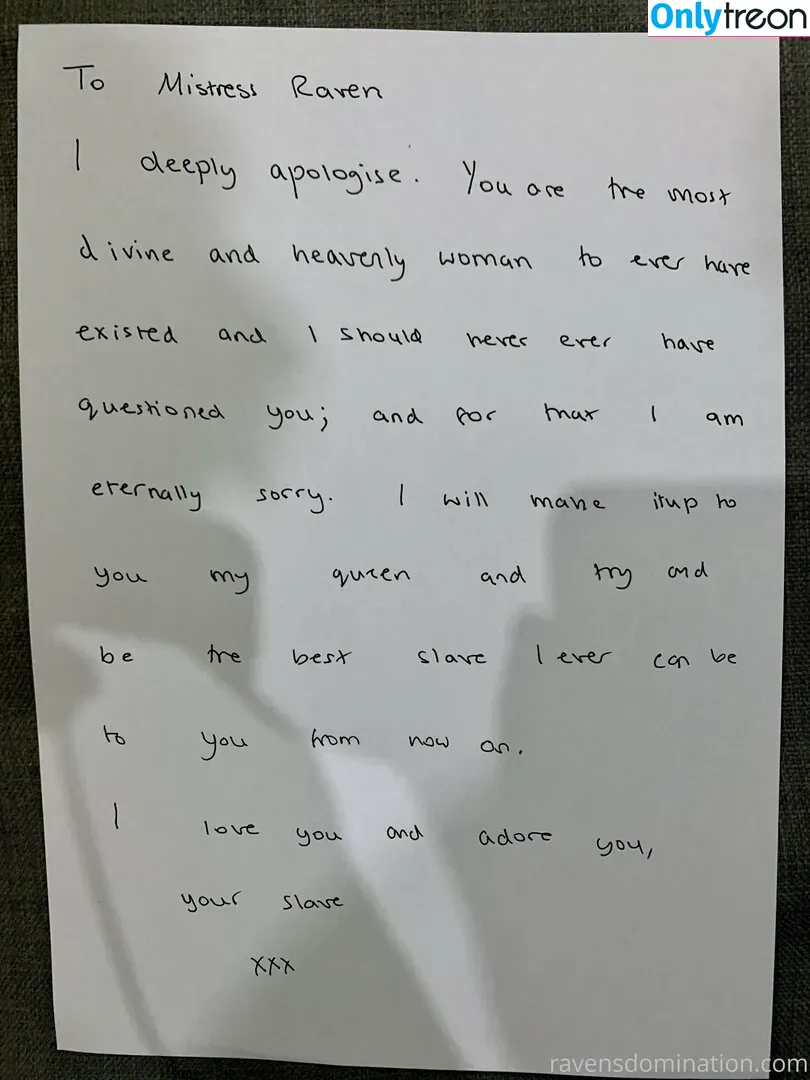 Onlytreon
To Mistress Raven
I deeply apologise. You are the most
divine and heavenly woman to ever have
existed and I should never ever have
questioned you; and for that I am
eternally sorry. I will make it up to
you my queen and try and
be the best slave I ever can be
to you from now on.
I love you and adore you,
your slave
xxx
ravensdomination.com